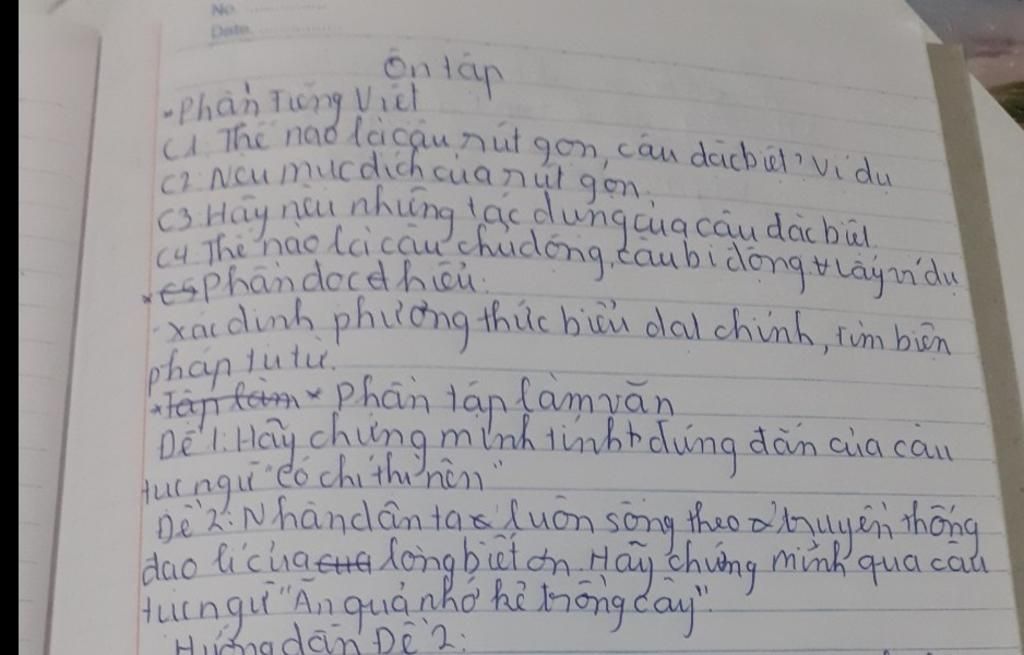 No.
Date.
Ôn tập
- Phần Tiếng Việt
C1. Thế nào là câu rút gọn, câu đặc biệt? Ví dụ
C2: Nêu mục đích của rút gọn.
C3: Hãy nêu những tác dụng của câu đặc biệt
C4. Thế nào là câu chủ động, câu bị động lấy ví dụ
* Phần đọc hiểu.
- Xác định phương thức biểu đạt chính, tìm biện
pháp tu từ.
* Phần tập làm văn
Đề 1: Hãy chứng minh tính đúng đắn của câu
tục ngữ "có chí thì nên"
Đề 2: Nhân dân ta luôn sống theo truyền thống
đạo lí của lòng biết ơn. Hãy chứng minh qua câu
tục ngữ "Ăn quả nhớ kẻ trồng cây".
Hướng dẫn Đề 2: